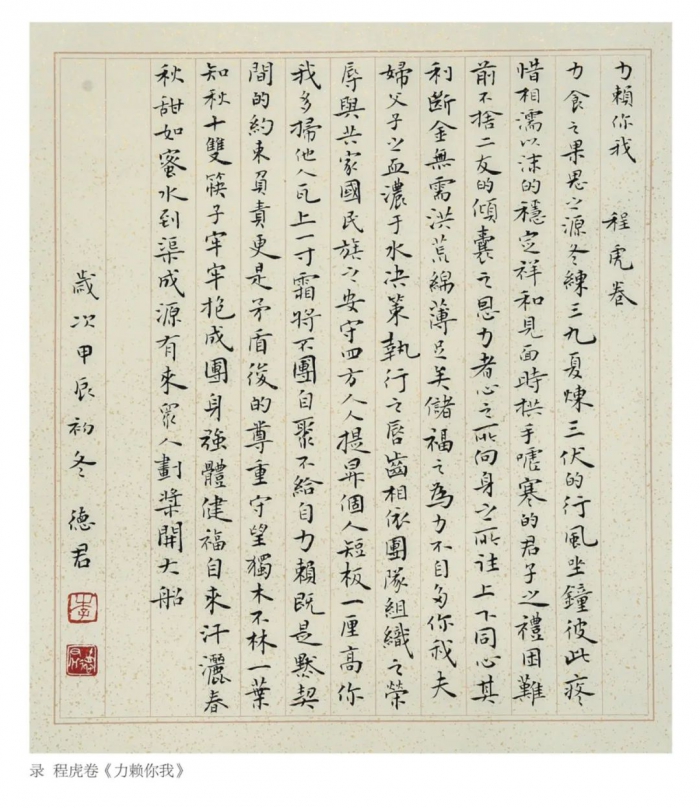 力賴你我　程虎卷
力食之果思之源冬練三九夏煉三伏的行風坐鐘彼此疼
惜相濡以沫的穩定祥和見面時拱手噓寒的君子之禮困難
前不捨二友的傾囊之恩力者心之所向身之所往上下同心其
利斷金無需洪荒綿薄足矣儲福之為力不自多你我夫
婦父子之血濃于水決策執行之唇齒相依團隊組織之榮
辱與共家國民族之安守四方人人提昇個人短板一厘高你
我多掃他人瓦上一寸霜將不團自聚不給自力賴既是默契
間的約束負責更是矛盾後的尊重守望獨木不林一葉
知秋十雙筷子牢牢抱成團身強體健福自來汗灑春
秋甜如蜜水到渠成源有來眾人劃槳開大船
歲次甲辰初冬 德君
李
德君
录 程虎卷《力赖你我》